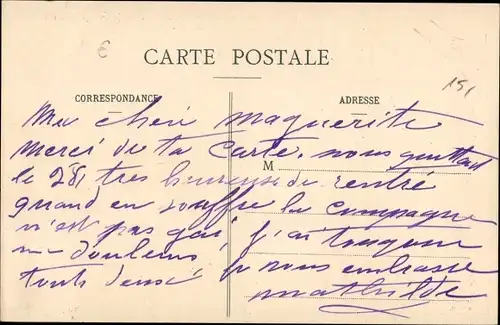 €
151
CARTE POSTALE
CORRESPONDANCE
ADRESSE
M
Ma cheri Maguerite
Merci de ta Carte. nous quittant
le 28 tres heureuse de rentré
quand on souffre la campagne
n'est pas gai, j'ai toujour
me douleurs, je vous embrasse
touts deux
Mathilde